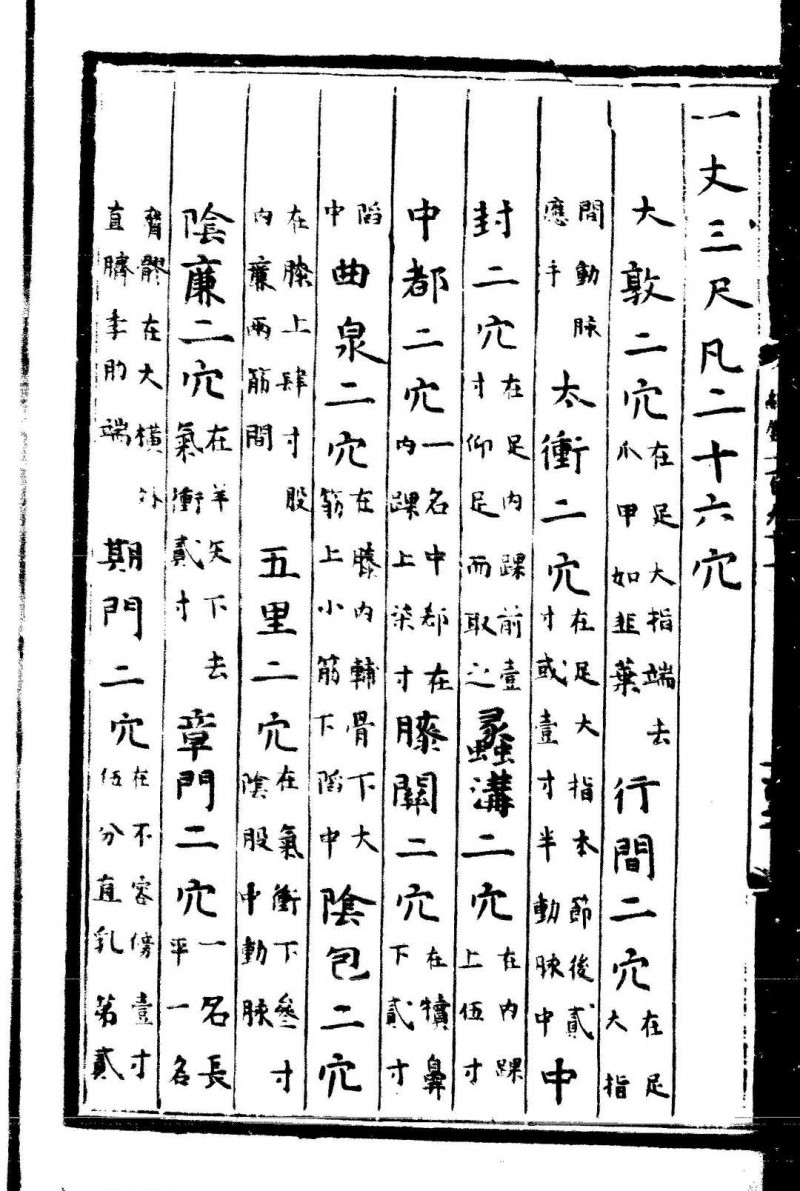 一丈三尺凡二十六穴
大敦二穴在足大指端去爪甲如韭葉行間二穴在足大指
間動脉應手太衝二穴在足大指本節後貳寸或壹寸半動脉中中
封二穴在足内踝前壹寸仰足而取之蠡溝二穴在内踝上伍寸
中都二穴一名中郄在内踝上柒寸膝關二穴在犢鼻下貳寸
陷中曲泉二穴在膝内輔骨下大筋上小筋下陷中陰包二穴
在膝上肆寸股内廉兩筋間五里二穴在氣衝下叄寸陰股中動脉
陰廉二穴在羊矢下去氣衝貳寸章門二穴一名長平一名
脅髎在大橫外直臍季肋端期門二穴在不容傍壹寸伍分直乳第貳